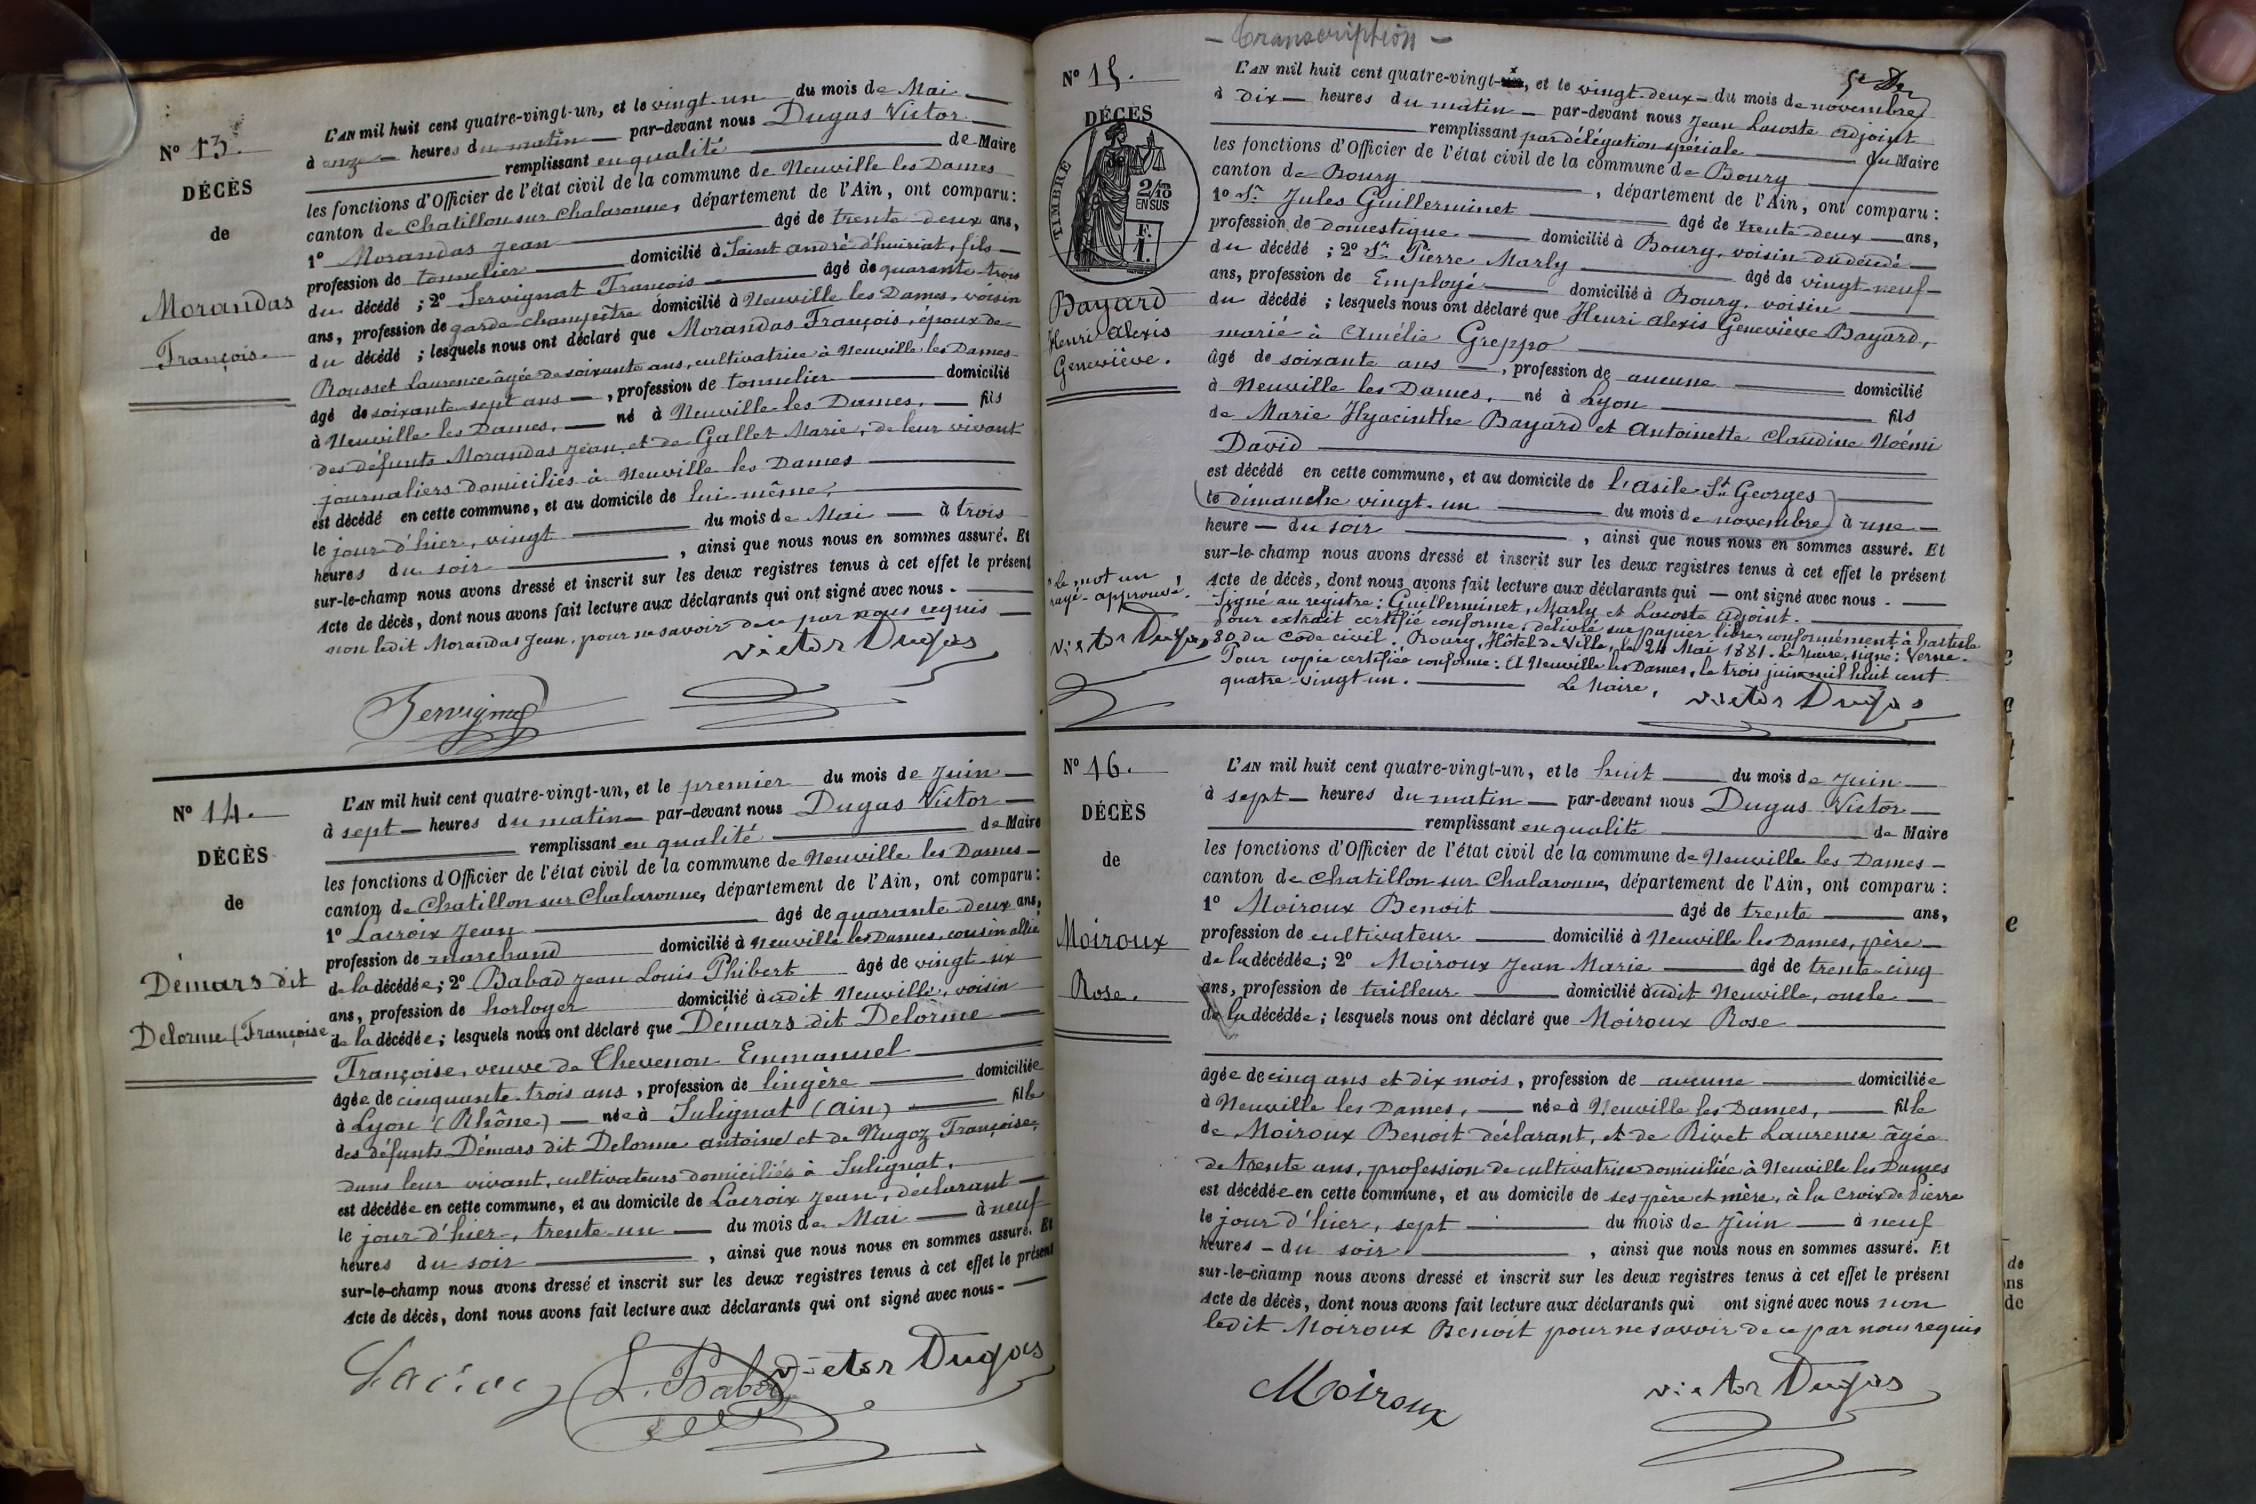 N° 13.
DÉCÈS
de
Morandas
François.
L'AN mil huit cent quatre-vingt-un, et le vingt-un du mois de Mai
à onze heures du matin par-devant nous Dugas Victor
remplissant en qualité de Maire
les fonctions d'Officier de l'état civil de la commune de Neuville les Dames
canton de Chatillon sur Chalaronne, département de l'Ain, ont comparu :
1° Morandas Jean âgé de trente-deux ans,
profession de tonnelier domicilié à Saint André d'huiriat, fils
du décédé ; 2° Servignat François âgé de quarante-trois
ans, profession de garde-champêtre domicilié à Neuville les Dames, voisin
du décédé ; lesquels nous ont déclaré que Morandas François, époux de
Rousset Laurence âgée de soixante ans, cultivatrice à Neuville les Dames
âgé de soixante-sept ans, profession de tonnelier domicilié
à Neuville les Dames, né à Neuville-les Dames, fils
des défunts Morandas Jean et de Gallet Marie, de leur vivant
journaliers domiciliés à Neuville les Dames
est décédé en cette commune, et au domicile de lui-même,
le jour d'hier, vingt du mois de Mai à trois
heures du soir, ainsi que nous nous en sommes assuré. Et
sur-le-champ nous avons dressé et inscrit sur les deux registres tenus à cet effet le présent
Acte de décès, dont nous avons fait lecture aux déclarants qui ont signé avec nous.
non ledit Morandas Jean, pour ne savoir de ce par nous requis
Victor Dugas
Servignat
N° 14.
DÉCÈS
de
Démars dit
Delorme (Françoise
L'AN mil huit cent quatre-vingt-un, et le premier du mois de Juin
à sept heures du matin par-devant nous Dugas Victor
remplissant en qualité de Maire
les fonctions d'Officier de l'état civil de la commune de Neuville les Dames
canton de Chatillon sur Chalaronne, département de l'Ain, ont comparu :
1° Lacroix Jean âgé de quarante-deux ans,
profession de marchand domicilié à Neuville les Dames, cousin allié
de la décédée ; 2° Babad Jean Louis Phibert âgé de vingt-six
ans, profession de horloger domicilié à udit Neuville, voisin
de la décédée ; lesquels nous ont déclaré que Démars dit Delorme
Françoise, veuve de Thevenon Emmanuel
âgée de cinquante-trois ans, profession de lingère domiciliée
à Lyon (Rhône) née à Sulignat (Ain) fille
des défunts Démars dit Delorme Antoine et de Nugoz Françoise,
dans leur vivant, cultivateurs domiciliés à Sulignat,
est décédée en cette commune, et au domicile de Lacroix Jean, déclarant
le jour d'hier, trente-un du mois de Mai à neuf
heures du soir, ainsi que nous nous en sommes assuré. Et
sur-le-champ nous avons dressé et inscrit sur les deux registres tenus à cet effet le présent
Acte de décès, dont nous avons fait lecture aux déclarants qui ont signé avec nous.
Lacroix L. Babad Victor Dugas
- Transcription -
N° 15.
DÉCÈS
de
TIMBRE
2/10 EN SUS
F. 1.
Bayard
Henri Alexis
Geneviève.
L'AN mil huit cent quatre-vingt-un, et le vingt-deux du mois de novembre
à dix heures du matin par-devant nous Jean Lacoste adjoint
remplissant par délégation spéciale du Maire
les fonctions d'Officier de l'état civil de la commune de Bourg
canton de Bourg, département de l'Ain, ont comparu :
1° Sr Jules Guillerminet âgé de trente-deux ans,
profession de domestique domicilié à Bourg, voisin du décédé
du décédé ; 2° Sr Pierre Marly âgé de vingt-neuf
ans, profession de Employé domicilié à Bourg, voisin
du décédé ; lesquels nous ont déclaré que Henri Alexis Geneviève Bayard,
marié à Amélie Greppo
âgé de soixante ans, profession de aucune domicilié
à Neuville les Dames, né à Lyon fils
de Marie Hyacinthe Bayard et Antoinette Claudine Noémi
David
est décédé en cette commune, et au domicile de l'asile St Georges
le dimanche vingt-un du mois de novembre à une
heure du soir, ainsi que nous nous en sommes assuré. Et
sur-le-champ nous avons dressé et inscrit sur les deux registres tenus à cet effet le présent
Acte de décès, dont nous avons fait lecture aux déclarants qui ont signé avec nous.
Signé au registre : Guillerminet, Marly et Lacoste Adjoint.
Pour extrait certifié conforme, délivré sur papier libre conformément à l'article
80 du Code civil. Bourg, Hôtel de Ville, le 24 Mai 1881. Le Maire, signé : Verne.
Pour copie certifiée conforme : A Neuville les Dames, le trois juin mil huit cent
quatre-vingt-un. Le Maire, Victor Dugas
x le mot un
rayé approuvé.
Victor Dugas
N° 16.
DÉCÈS
de
Moiroux
Rose.
L'AN mil huit cent quatre-vingt-un, et le huit du mois de Juin
à sept heures du matin par-devant nous Dugas Victor
remplissant en qualité de Maire
les fonctions d'Officier de l'état civil de la commune de Neuville les Dames
canton de Chatillon sur Chalaronne, département de l'Ain, ont comparu :
1° Moiroux Benoit âgé de trente ans,
profession de cultivateur domicilié à Neuville les Dames, père
de la décédée ; 2° Moiroux Jean Marie âgé de trente-cinq
ans, profession de tailleur domicilié à udit Neuville, oncle
de la décédée ; lesquels nous ont déclaré que Moiroux Rose
âgée de cinq ans et dix mois, profession de aucune domiciliée
à Neuville les Dames, née à Neuville les Dames, fille
de Moiroux Benoit déclarant, et de Rivet Laurence âgée
de trente ans, profession de cultivatrice domiciliée à Neuville les Dames
est décédée en cette commune, et au domicile de ses père et mère, à la Croix de Pierre
le jour d'hier, sept du mois de Juin à neuf
heures du soir, ainsi que nous nous en sommes assuré. Et
sur-le-champ nous avons dressé et inscrit sur les deux registres tenus à cet effet le présent
Acte de décès, dont nous avons fait lecture aux déclarants qui ont signé avec nous non
ledit Moiroux Benoit pour ne savoir de ce par nous requis
Moiroux Victor Dugas